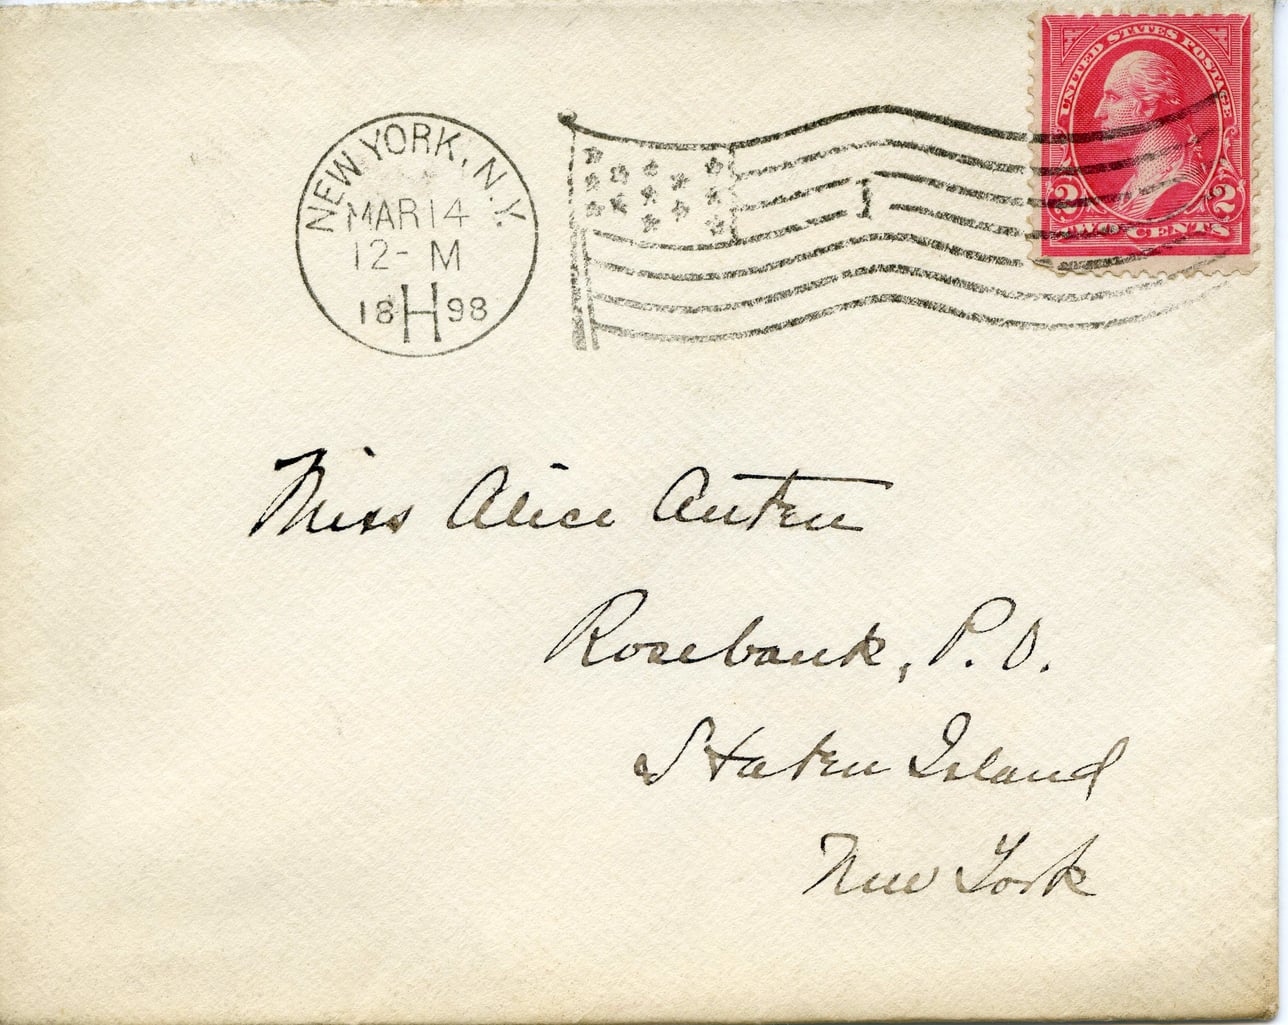 NEW YORK, N.Y.
MAR 14
12- M
18 H 98
I
UNITED STATES POSTAGE
2 2
TWO CENTS
Miss Alice Auten
Rosebank, P. O.
Staten Island
New York